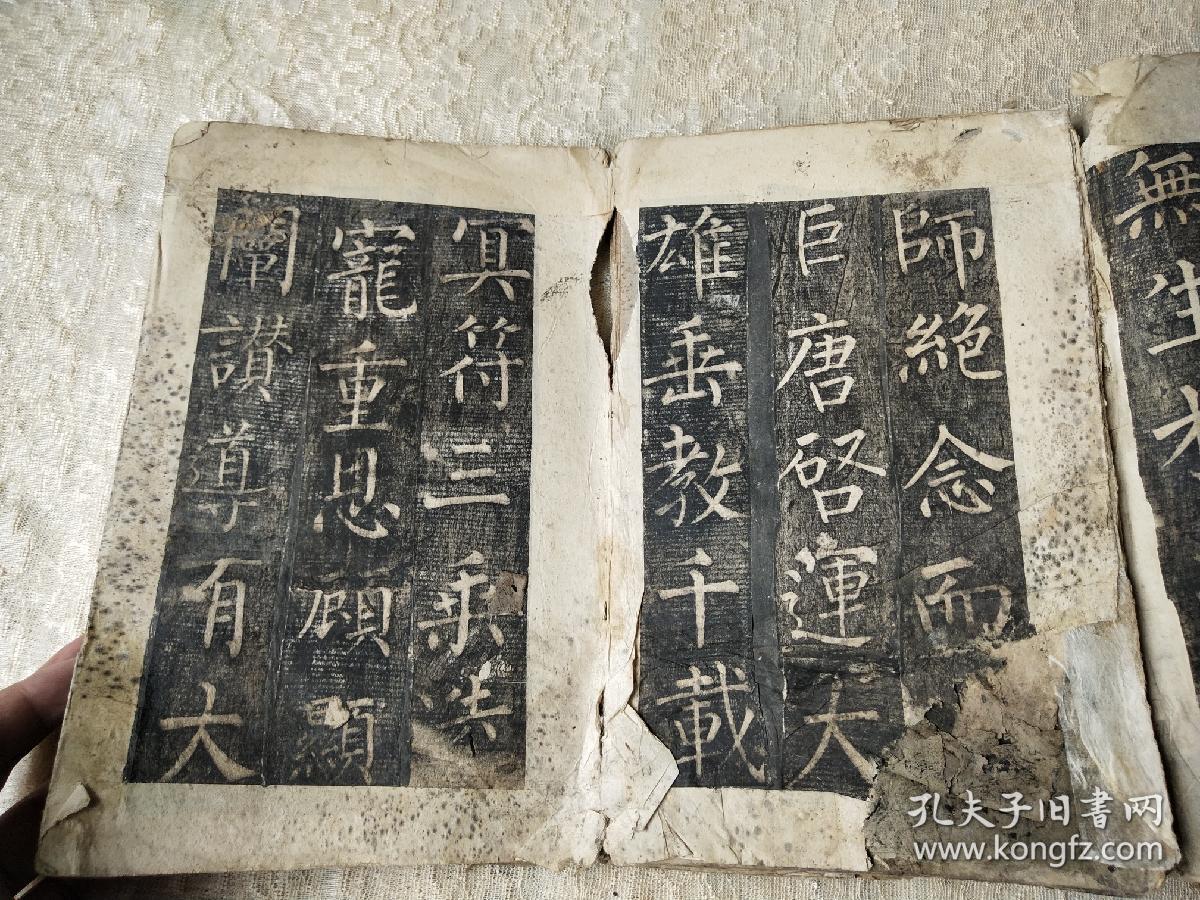 無生
師絶念而
巨唐啓運大
雄垂教千載
冥符三乘迭
寵重恩顧顯
闡讃導有大
孔夫子旧書网
www.kongfz.com